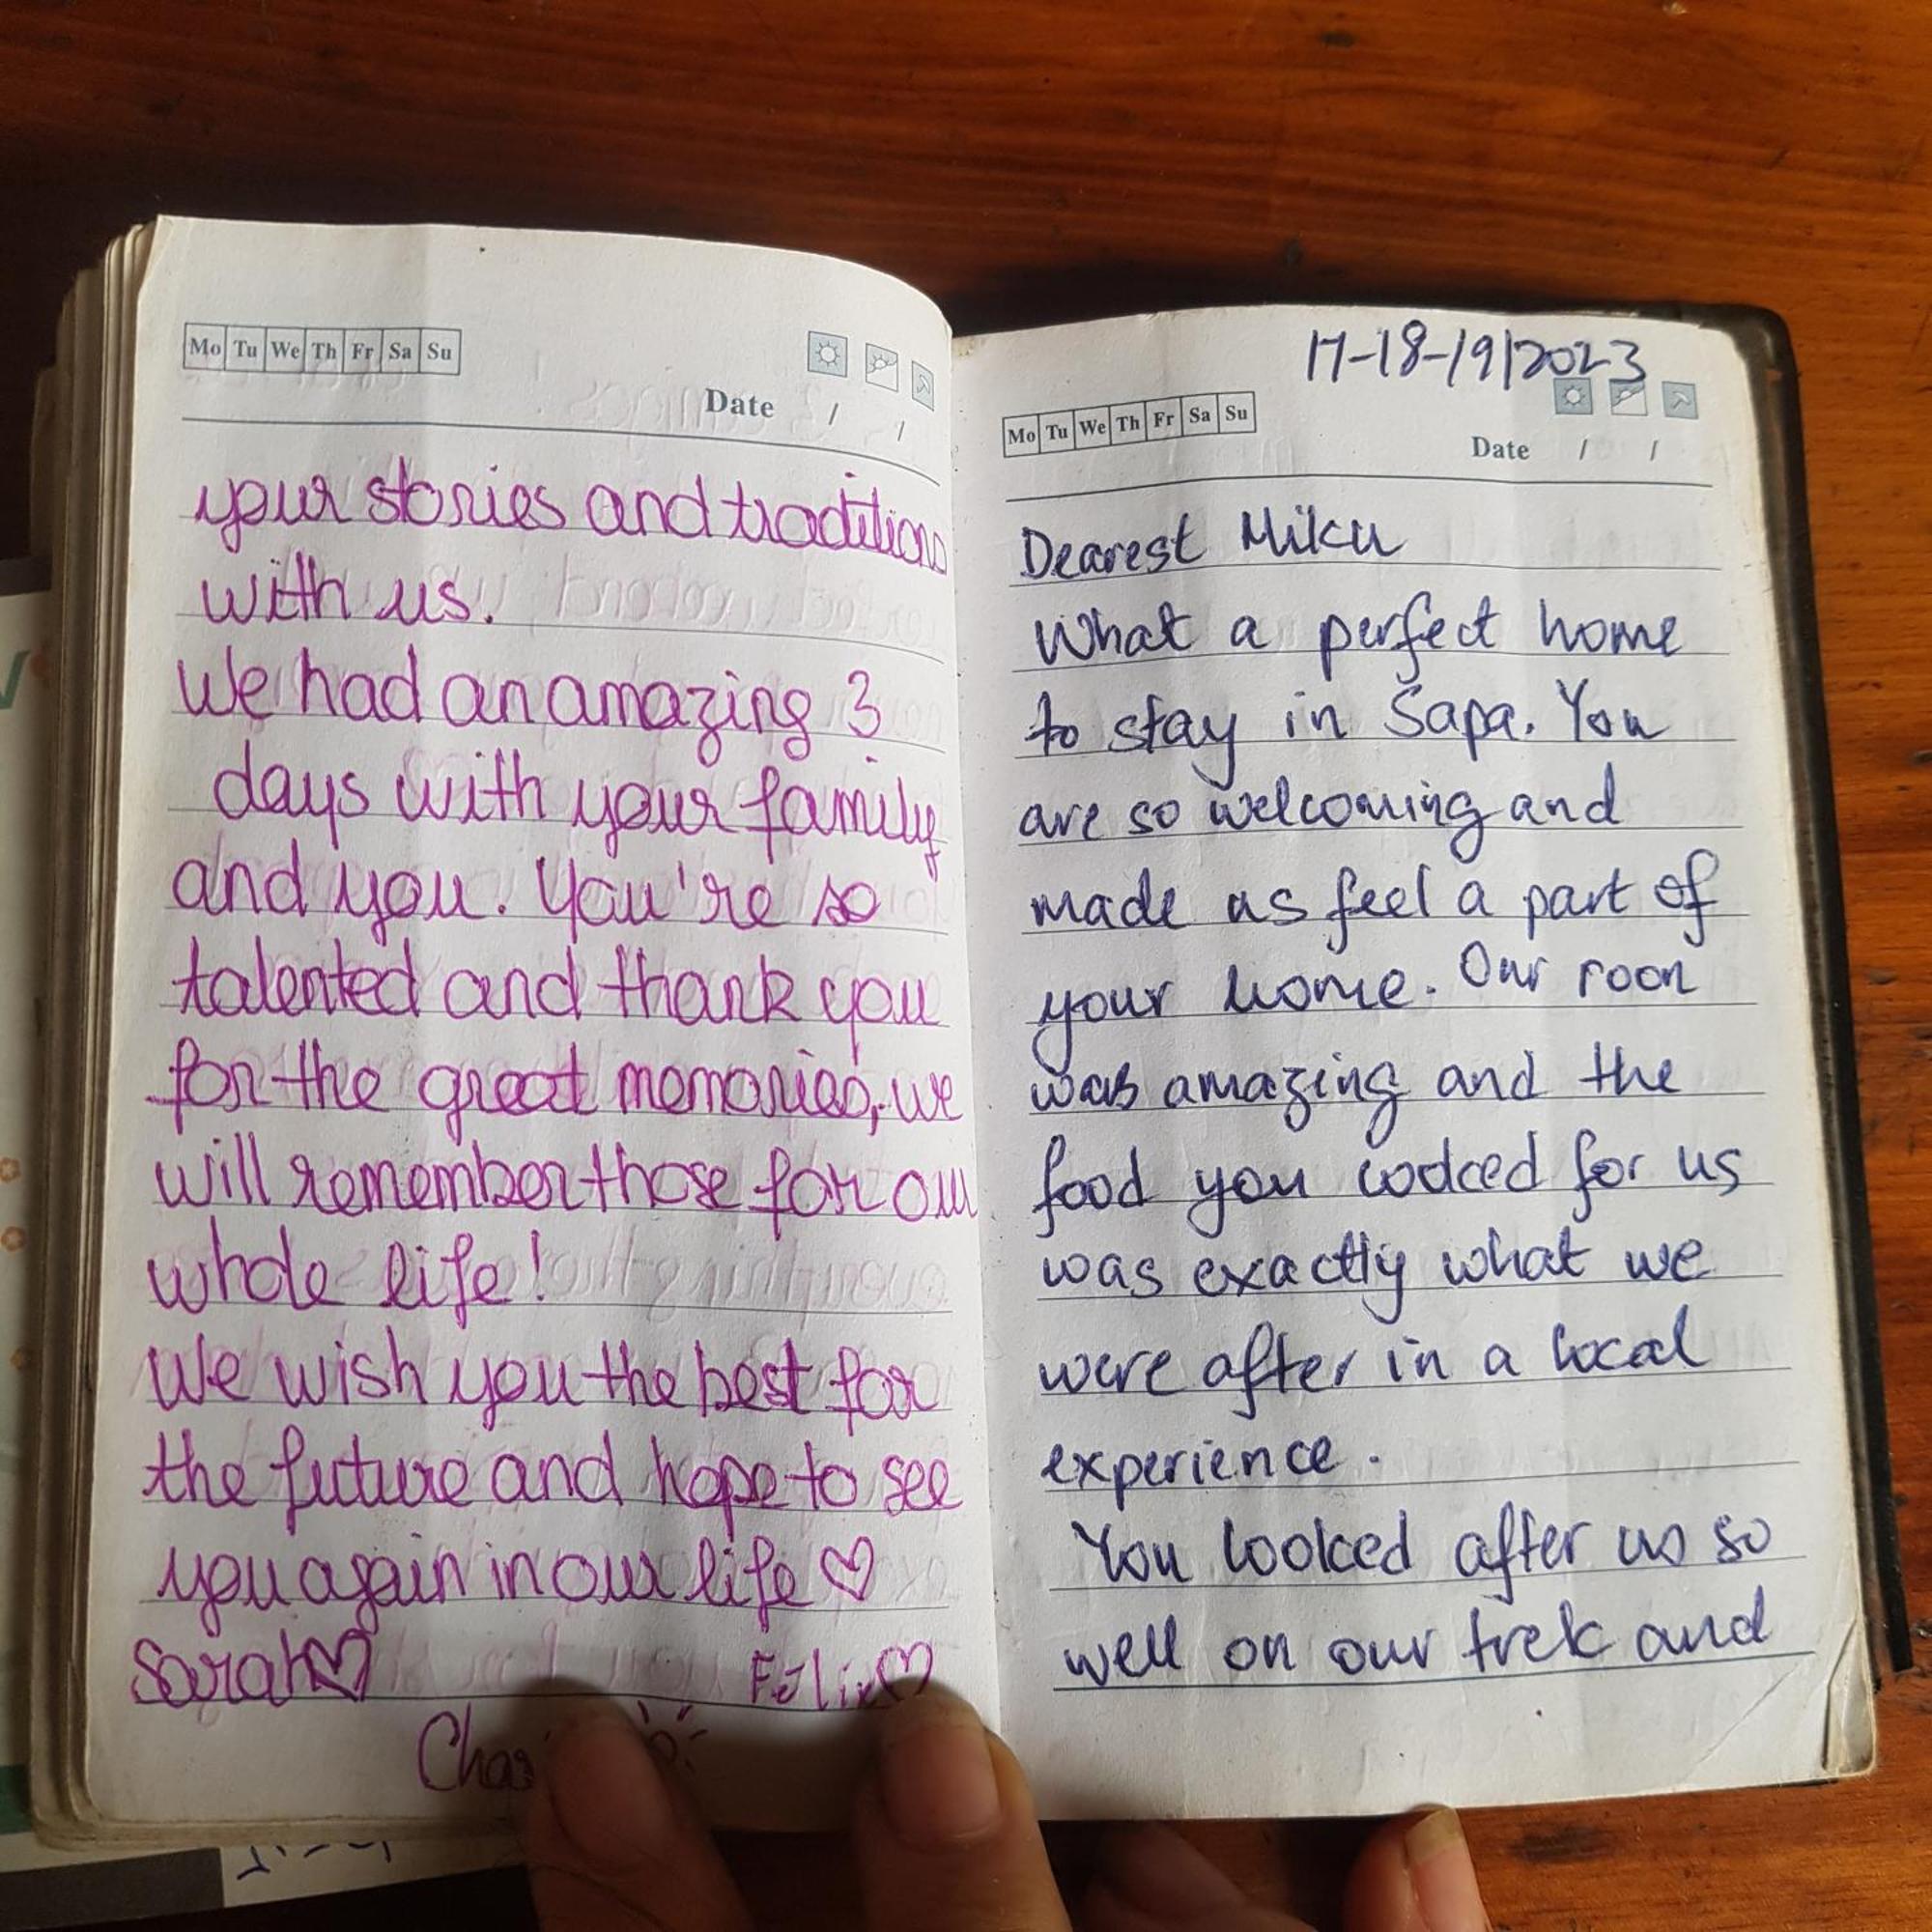 Mo Tu We Th Fr Sa Su
Date / /
your stories and tradition
with us.
We had an amazing 3
days with your family
and you. You're so
talented and thank you
for the great memories, we
will remember those for our
whole life!
We wish you the best for
the future and hope to see
you again in our life ♡
Sarah♡ Felix♡
17-18-19/2023
Mo Tu We Th Fr Sa Su
Date / /
Dearest Miku
What a perfect home
to stay in Sapa. You
are so welcoming and
made us feel a part of
your home. Our room
was amazing and the
food you cooked for us
was exactly what we
were after in a local
experience.
You looked after us so
well on our trek and